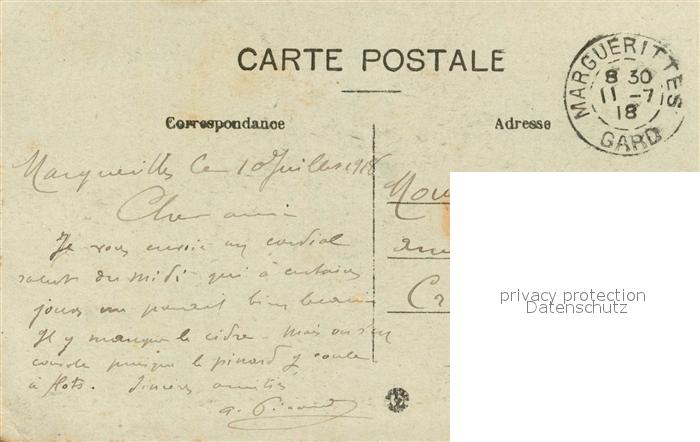 CARTE POSTALE
MARGUERITTES
8 30
11 -7
18
GARD
Correspondance
Adresse
Marguerittes le 10 Juillet 1918
Cher ami
Je vous envoie un cordial
salut du midi qui à certains
jours me parait bien beau
Il y manque le cidre - mais on s'en
console puisque le pinard y coule
à flots. Sincères amitiés
privacy protection
Datenschutz